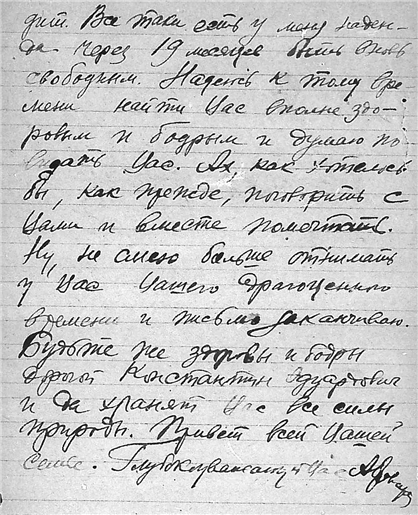 дит. Все таки есть у меня надеж-
да через 19 месяцев быть вновь
свободным. Надеюсь к тому вре
мени найти Вас вполне здо-
ровым и бодрым и думаю по
видать Вас. Ах, как хотелось
бы, как прежде, поговорить с
Вами и вместе помечтать.
Ну, не смею больше отнимать
у Вас Вашего драгоценного
времени и письмо заканчиваю.
Будьте же здоровы и бодры
дорогой Константин Эдуардович
и да хранят Вас все силы
природы. Привет всей Вашей
семье. Глубокоуважающий Вас